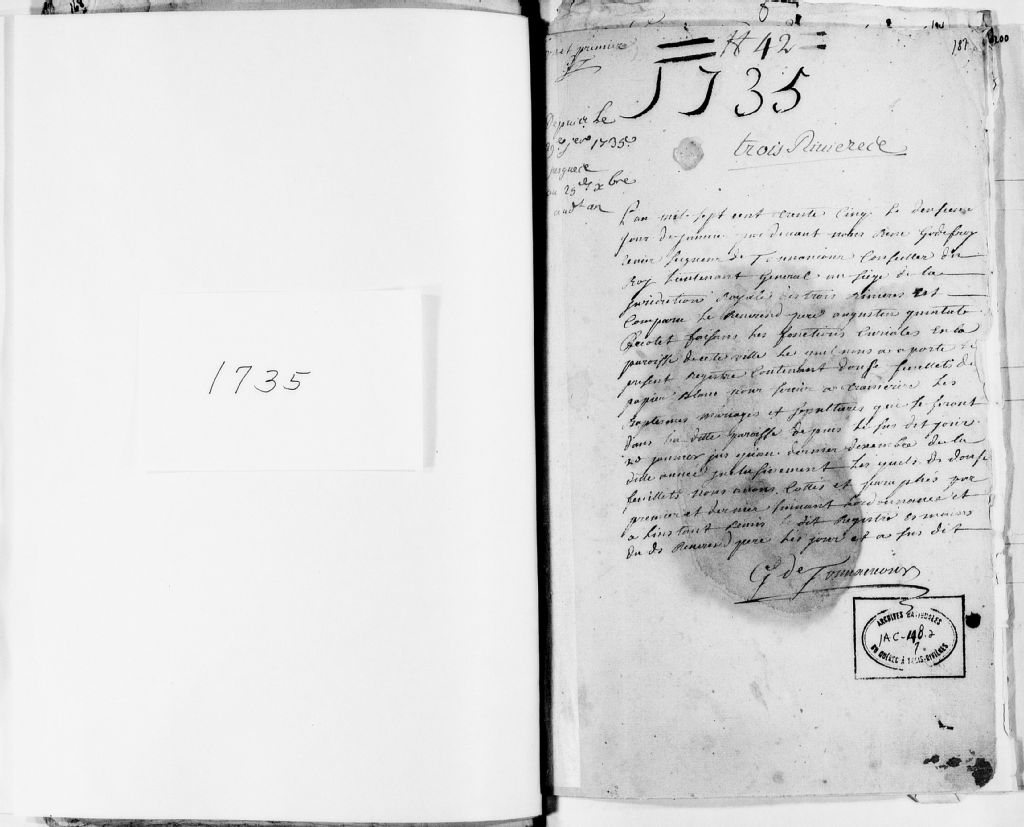 1735
et premier
N 42
187
200
1735
Depuis Le
jer 1735
jusquece
au 25e xbre
audt an
trois Rivieres
L'an mil sept cent trente Cinq Le
jour de janvier par devant nous Rene Godefroy
seigneur de Tonnancour Conseiller du
Roy Lieutenant General au siege de la
juridiction Royale des trois Rivieres est
Comparu Le Reverend pere augustin quintale
Recolet faisant Les fonctions Curiales En la
paroisse de cette ville Le nous a aporté Le
present Registre Contenant douse feuillets de
papier blanc pour servir a Les
Baptesmes mariages et sepultures qui se feront
dans la ditte paroisse depuis Le sus dit jour
janvier jus qu'au dernier desembre de la
ditte année inclusivement Les quels ds douse
feuillets nous avons Cottés et paraphés par
premier et dernier suivant Lordonnance et
a Linstant Remis Le dit Registre Es mains
du ds Reverend pere Les jour et a sus dit
G de Tonnancour
ARCHIVES NATIONALES
1AC-48.2
7.
DU QUÉBEC À TROIS-RIVIÈRES